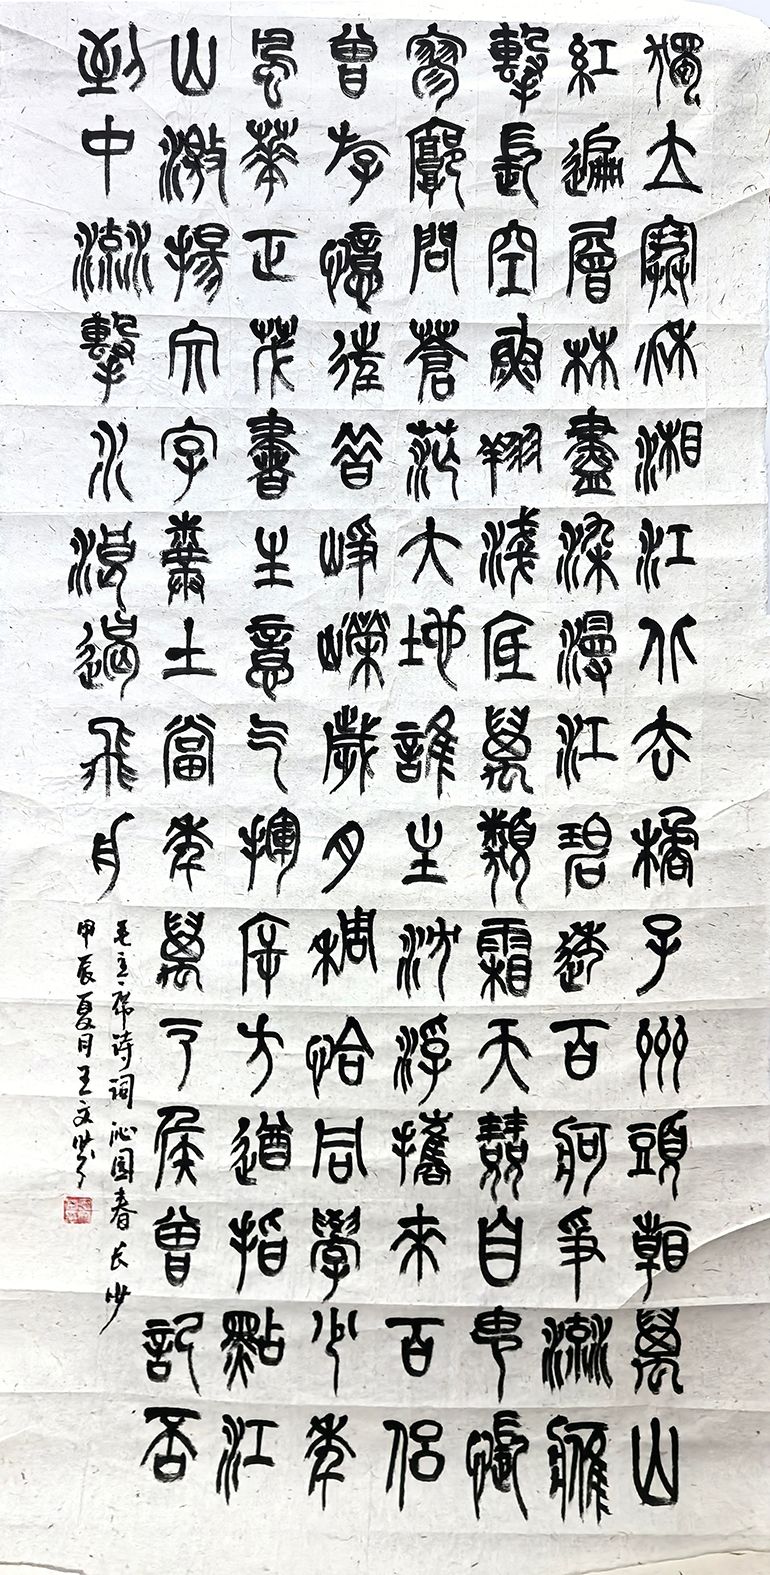 獨立寒秋湘江北去橘子州頭看萬山
紅遍層林盡染漫江碧透百舸爭流鷹
擊長空魚翔淺底萬類霜天競自由悵
寥廓問蒼茫大地誰主沈浮攜來百侶
曾斿憶往昔崢嶸歲月稠恰同學少年
風華正茂書生意气揮斥方遒指點江
山激揚文字糞土當年萬户侯曾記否
到中流擊水浪遏飛舟
毛主席诗词沁园春长沙
甲辰夏月王文